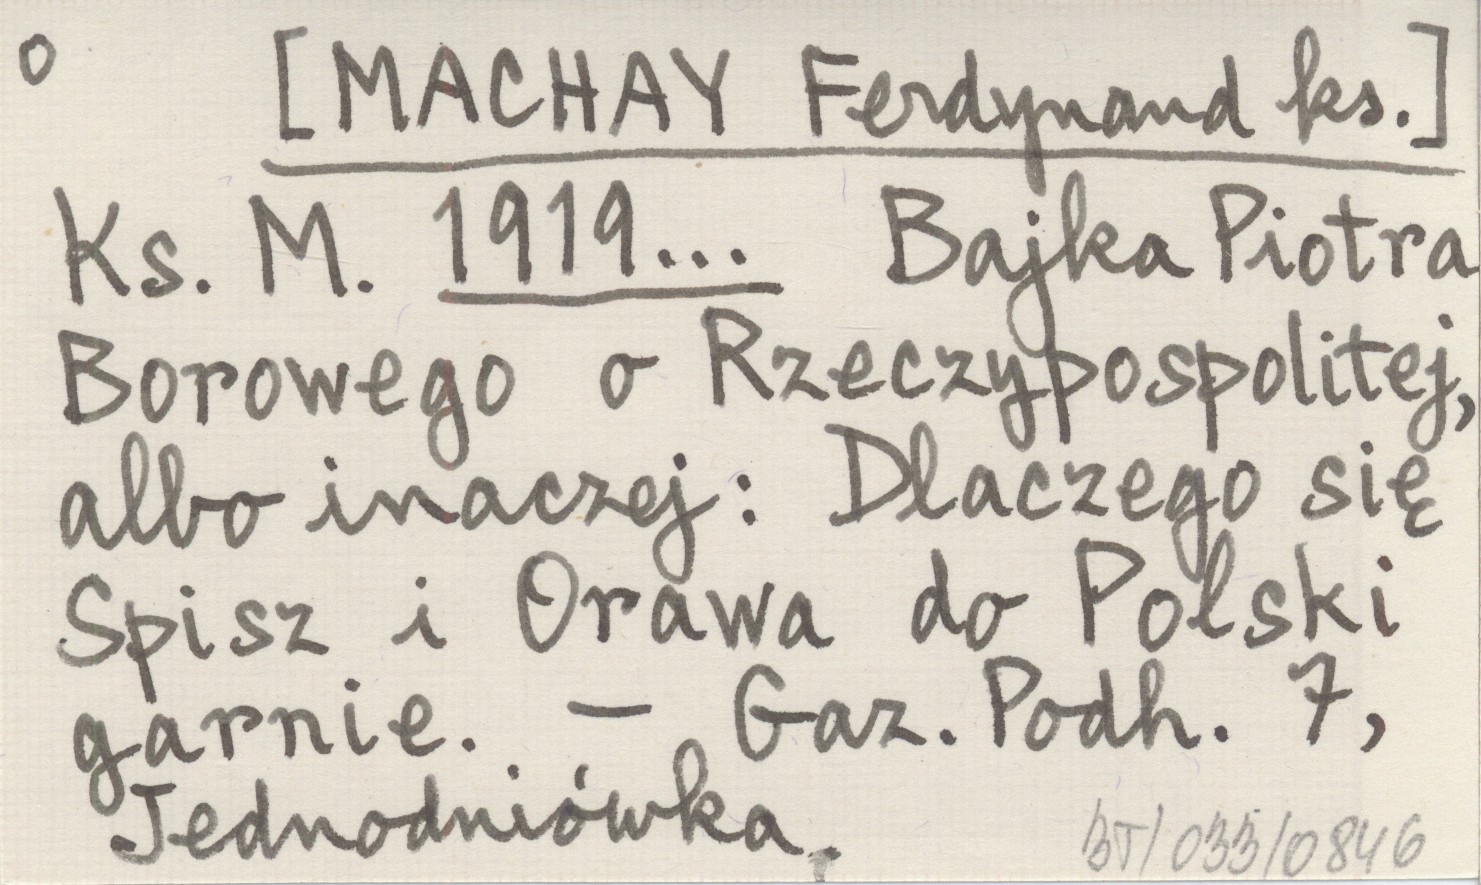 o [MACHAY Ferdynand ks.]
Ks. M. 1919... Bajka Piotra
Borowego o Rzeczypospolitej,
albo inaczej: Dlaczego się
Spisz i Orawa do Polski
garnie. — Gaz. Podh. 7,
Jednodniówka.
BT/033/0846